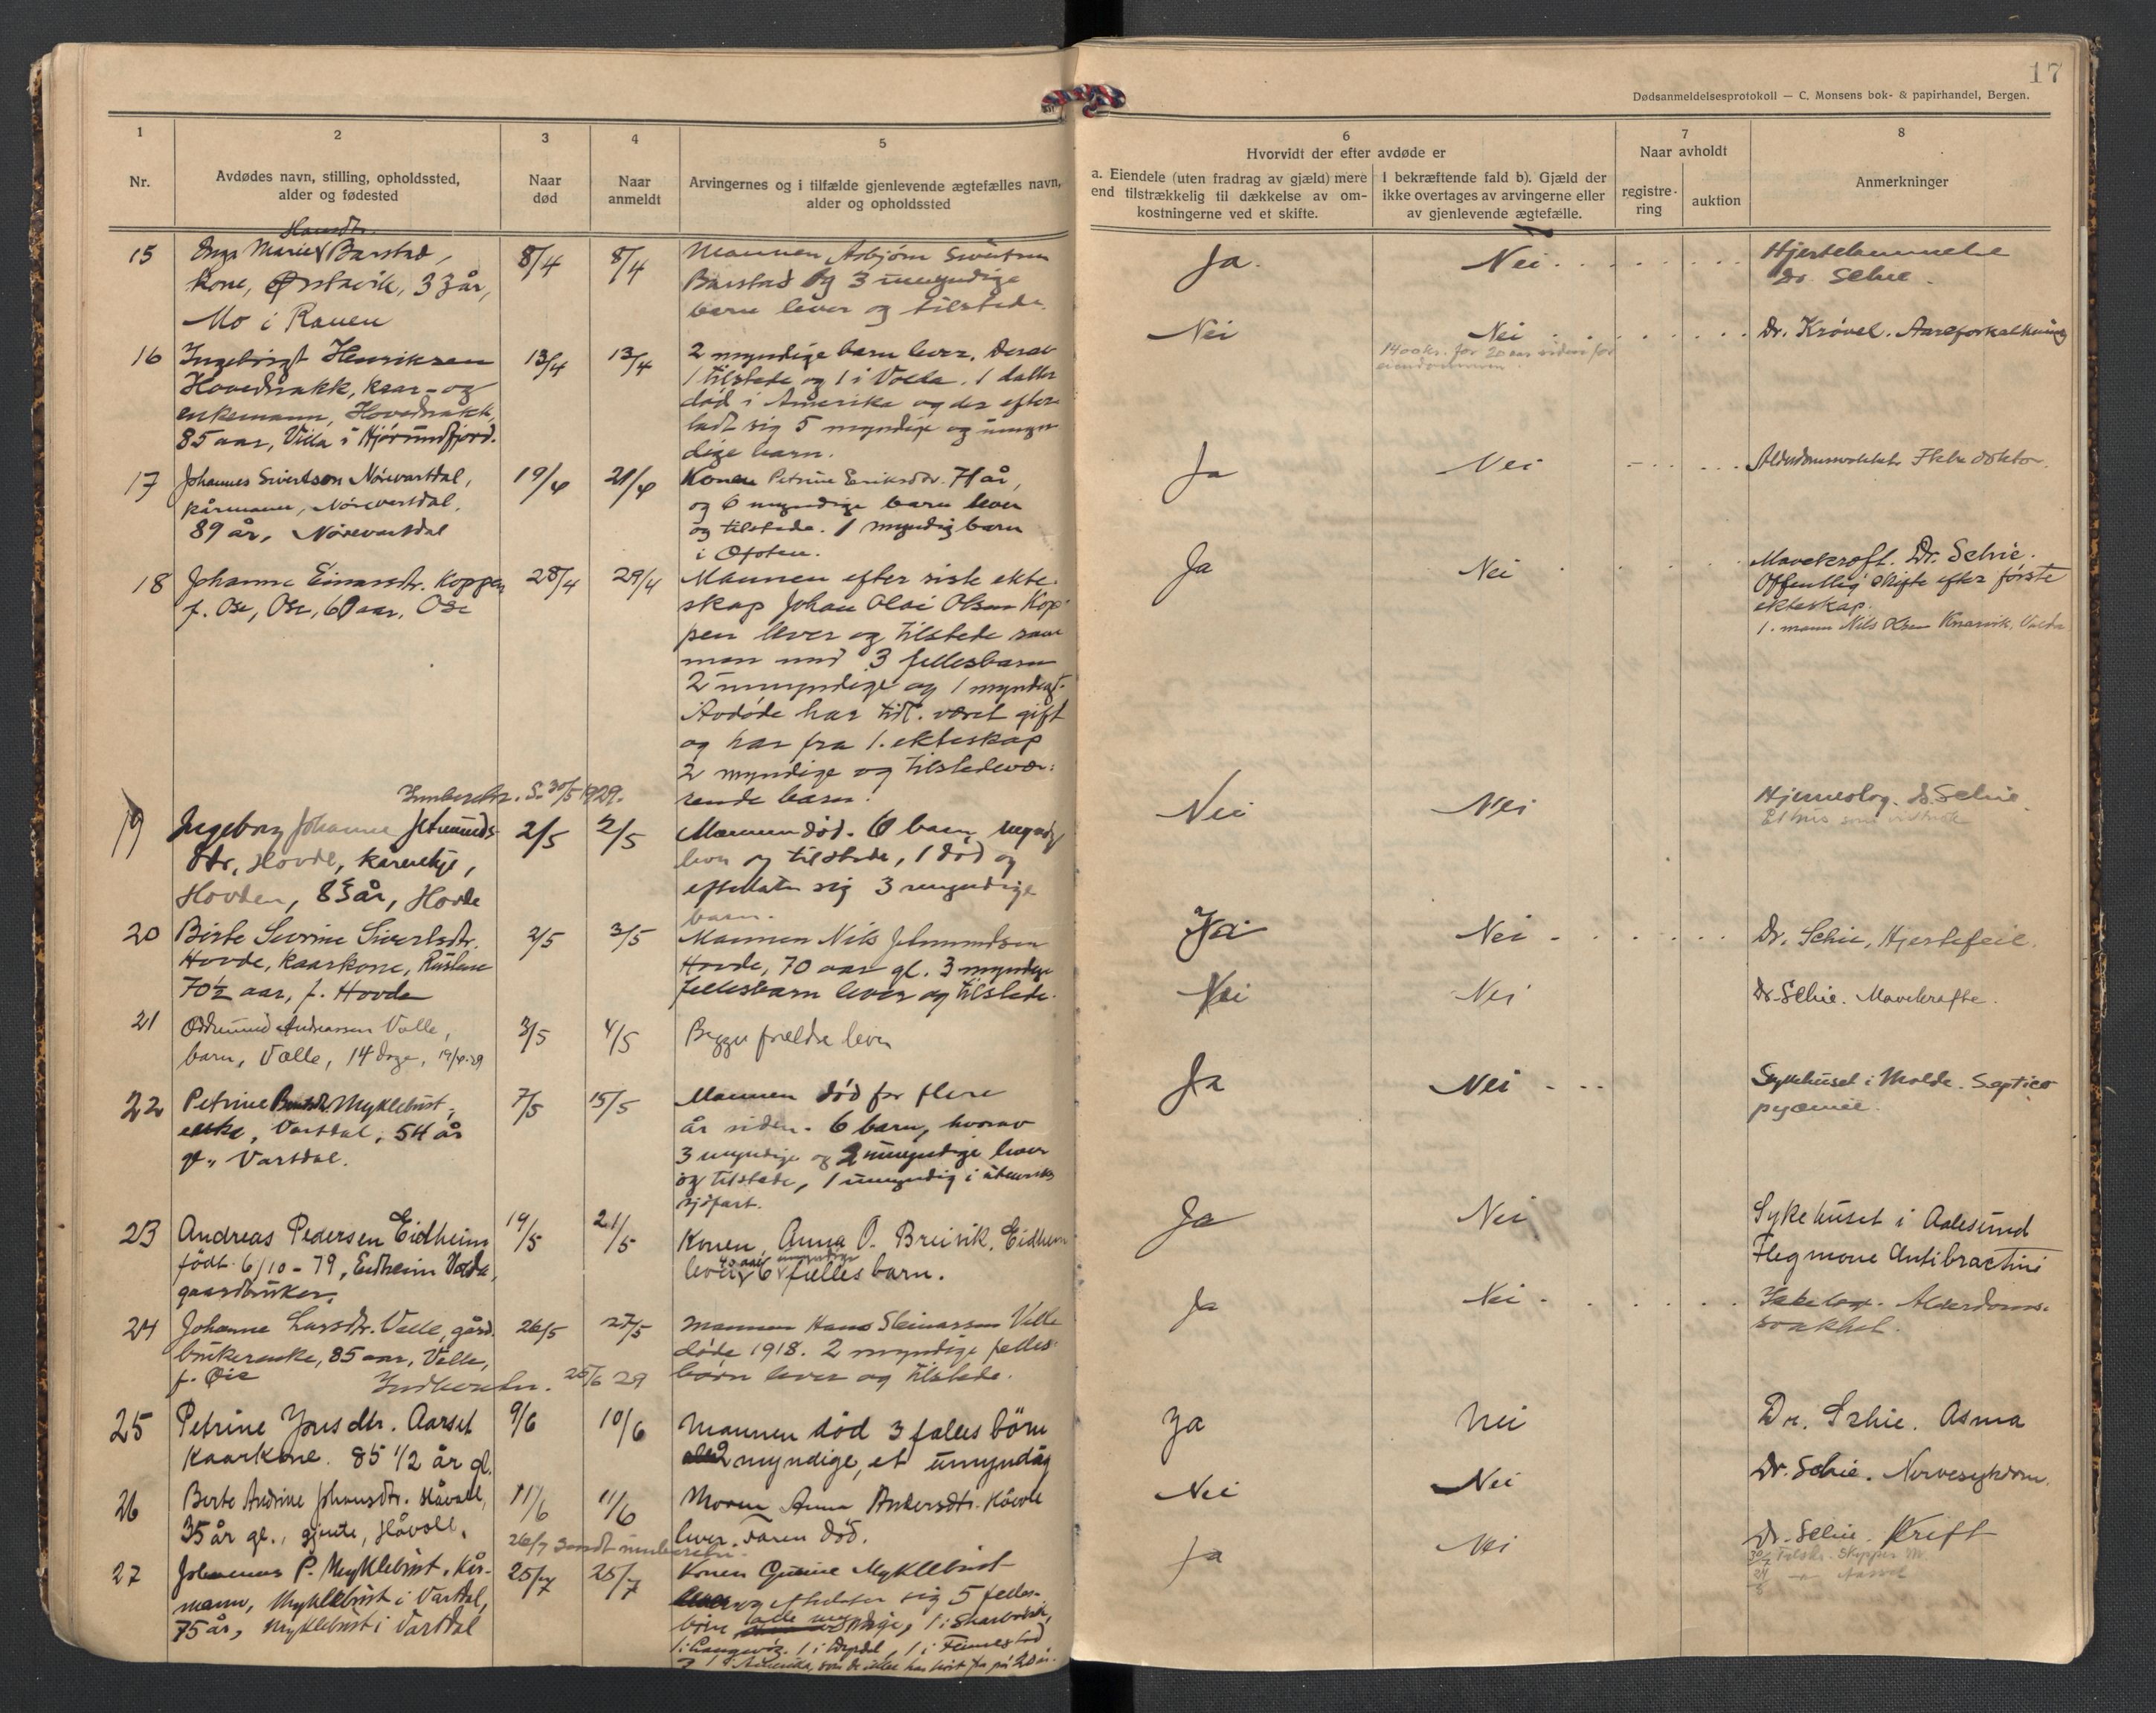 17
Dødsanmeldelsesprotokoll — C. Monsens bok- & papirhandel, Bergen.
1
2
3
4
5
6
7
8
Nr.
Avdødes navn, stilling, opholdssted,
alder og fødested
Naar
død
Naar
anmeldt
Arvingernes og i tilfælde gjenlevende ægtefælles navn,
alder og opholdssted
Hvorvidt der efter avdøde er
a. Eiendele (uten fradrag av gjæld) mere
end tilstrækkelig til dækkelse av om-
kostningerne ved et skifte.
I bekræftende fald b). Gjæld der
ikke overtages av arvingerne eller
av gjenlevende ægtefælle.
Naar avholdt
registre-
ring
auktion
Anmerkninger
Hansdtr.
15 Inga Marie Barstad,
kone, Ørstavik, 33 år,
Mo i Ranen
8/4
8/4
Mannen Asbjørn Sivertsen
Barstad og 3 umyndige
barn lever og tilstede.
Ja.
Nei
Dr. Schie.
16 Ingebrigt Henriksen
Hovedsnakk, kaar- og
enkemann, Hovedsnakk,
85 aar, Villa i Hjørundfjord.
13/4
13/4
2 myndige barn lever. Derav
1 tilstede og 1 i Volda. 1 datter
død i Amerika og der efter-
ladt sig 5 myndige og umyn-
dige barn.
Nei
Nei
1400 kr. for 20 aar siden for
eiendommen.
Dr. Krövel. Aareforkalkning
17 Johannes Sivertsen Nörevartdal,
kårmann, Nörevartdal,
89 år, Nörevartdal
19/4
21/4
Konen Petrine Eriksdtr. 71 år,
og 6 myndige barn lever
og tilstede. 1 myndig barn
i Ofoten.
Ja
Nei
Alderdomssvakhet. Ikke doktor.
18 Johanne Einarsdtr. Koppen
f. Ose, Ose, 60 aar, Ose
28/4
29/4
Mannen efter siste ekte-
skap Johan Olai Olsen Kop-
pen lever og tilstede sam-
men med 3 fellesbarn
2 umyndige og 1 myndigt.
Avdøde har tidl. været gift
og har fra 1. ekteskap
2 myndige og tilstedevæ-
rende barn.
Ja
Nei
Mavekræft. Dr. Schie.
Offentlig skifte efter første
ekteskap.
1. mann Nils Olsen Volda
Innberettn. S. 30/5 1929.
19 Ingeborg Johanne Jetmunds-
dtr, Hovde, kårenkje,
Hovden, 83 år, Hovde
2/5
2/5
Mannen død. 6 barn myndige
lever og tilstede, 1 død og
efterlater sig 3 myndige
barn.
Nei
Nei
Hjerneslag. Dr. Schie.
20 Birte Severine Sivertsdtr.
Hovde, kaarkone,
70½ aar, f. Hovde
2/5
3/5
Mannen Nils Jetmundsen
Hovde, 70 aar gl. 3 myndige
fellesbarn lever og tilstede.
Ja
Nei
Dr. Schie, Hjertefeil.
21 Oddmund Andreassen Valle,
barn, Valle, 14 dage, 19/4-29
3/5
4/5
Begge foreldre lever
Nei
Nei
Dr. Schie. Mavekræfte.
22 Petrine Myklebust,
enke, Vartdal, 54 år
gl., Vartdal.
7/5
15/5
Mannen død for flere
år siden. 6 barn, hvorav
3 myndige og 2 umyndige lever
og tilstede, 1 umyndig i utenriks
sjöfart.
Ja
Nei
Sykehuset i Molde. Septico
pyæmie.
23 Andreas Pedersen Eidheim
født 6/10-79, Eidheim Volda,
gaardbruker.
19/5
21/5
Konen, Anna O. Breivik, Eidheim
lever 6 fælles barn.
umyndige
Ja
Nei
Sykehuset i Aalesund
Flegmone Antibractini
24 Johanne Larsdtr. Velle, gård-
brukerenke, 85 aar, Velle,
f. Øie
26/5
27/5
Mannen Hans Steinarssen Velle
døde 1918. 2 myndige felles-
børn lever og tilstede.
Ja
Nei
Alderdoms-
svakhet.
Innberettn. 25/6 29
25 Petrine Jensdtr. Aarset
Kaarkone. 85 1/2 år gl.
9/6
10/6
Mannen död 3 fælles börn
2 myndige, et umyndig
Ja
Nei
Dr. Schie. Asma
26 Berte Andrine Johansdtr. Håvoll,
35 år gl., gjente, Håvoll.
11/6
11/6
Moren Anna Andersdtr. Håvoll
lever. Faren död.
Nei
Nei
Dr. Schie. Nervesykdom.
26/7 Sendt innberetn.
27 Johannes P. Myklebust, Kår-
mann, Myklebust i Vartdal,
75 år, Myklebust i Vartdal
25/7
25/7
Konen Gurine Myklebust
og efterlater sig 5 felles-
börn alle myndige,
1 i Amerika, som de ikke har hört fra på 20 år.
Ja
Nei
Dr. Schie. Kreft